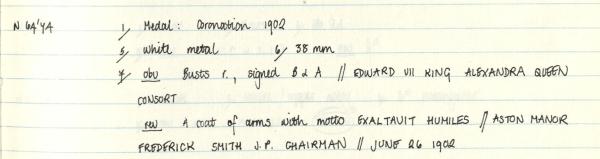 N 64'74 1/ Medal: Coronation 1902
5/ White metal 6/ 38 mm
7/ obv Busts r., signed B & A // EDWARD VII KING ALEXANDRA QUEEN
CONSORT
rev A coat of arms with motto EXALTAVIT HUMILES // ASTON MANOR
FREDERICK SMITH J.P. CHAIRMAN // JUNE 26 1902